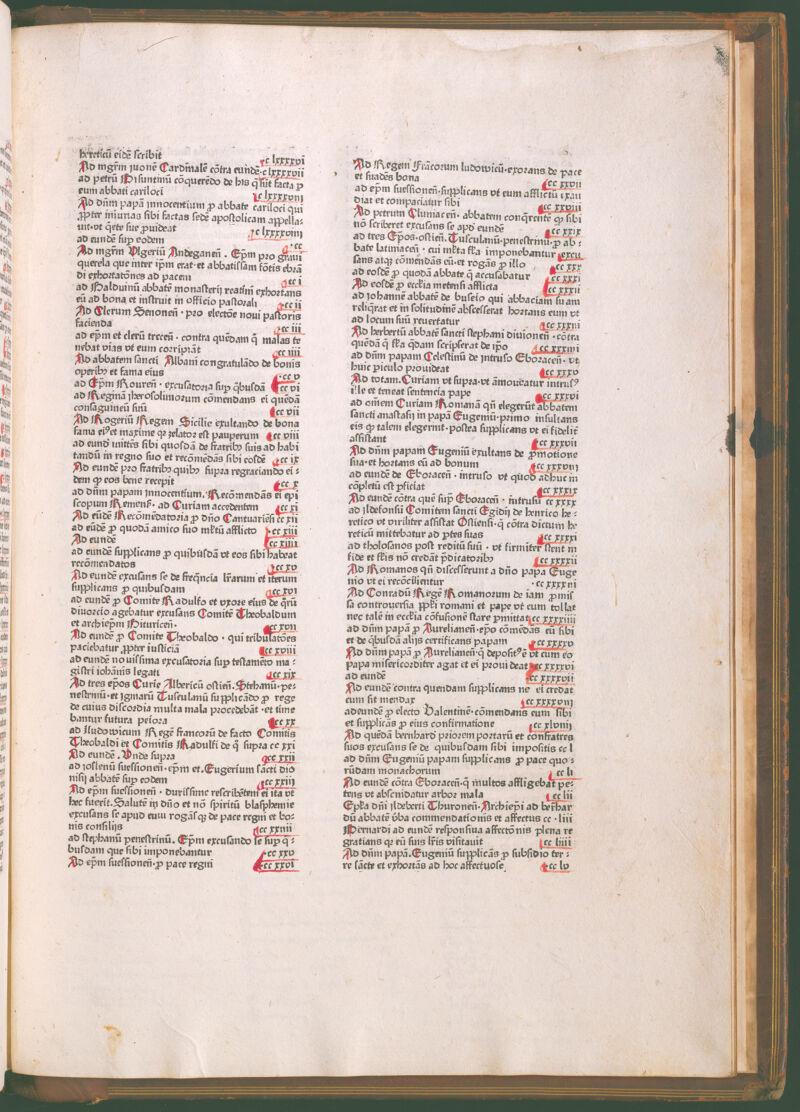 hereticū eidē scribit
·c lxxxxvi
Ad mgr̄m juonē Cardinalē cōtra eundē·c lxxxxvii
ad petrū Pisuntinū cōquerēdo de his q̄ sūt facta ꝓ
eum abbati cariloci
·c lxxxxvııı
Ad dn̄m papā innocentium ꝓ abbate cariloci qui
ꝓpter iniurias sibi factas sedē apostolicam appella-
uit·vt q̄ete sue ꝓuideat
·c lxxxxvıııı
ad eundē suꝑ eodem
·cc
Ad mgr̄m Vlgeriū Andeganen̄. Ep̄m pro graui
querela que inter ip̄m erat·et abbatissam fōtis ebra
di exhortatōnes ad pacem
·cc i
ad Balduinū abbatē monasterij reatini exhortans
eū ad bona et instruit in officio pastorali
·cc ii
Ad Clerum Senonen̄·pro electōne noui pastoris
facienda
·cc iii
ad ep̄m et clerū trecen̄·contra quēdam q̄ malas te
nebat vias vt eum corripiāt
·cc iiii
Ad abbatem sancti Albani congratulādo de bonis
operibꝰ et fama eius
·cc v
ad Ep̄m Rouren̄·excusatoria suꝑ q̄busdā
cc vi
ad Reginā iherosolimorum cōmendans ei quēdā
consaguineū suū
·cc vii
Ad Rogeriū Regem Sicilie exultando de bona
fama eiꝰ et maxime qꝛ zelatoꝛ est pauperum
·cc viii
ad eundē mittēs sibi quosdā de fratribꝰ suis ad habi
tandū in regno suo et recōmēdās sibi eosdē
·cc ix
Ad eundē pro fratribꝰ quibꝰ supra regraciando ei-
dem qꝛ eos bene recepit
·cc x
ad dn̄m papam innocentium. Recōmendās ei epi
scopum Remen̄·ad Curiam accedentem
cc xi
Ad eūdē Recōmēdatoria ꝓ dn̄o Cantuariēsi
cc xii
ad eūdē ꝓ quodā amico suo ml̄tū afflicto
·cc xiii
Ad eundē
·cc xiiii
ad eundē supplicans ꝓ quibusdā vt eos sibi habeat
recōmēdatos
·cc xv
Ad eundē excusans se de freq̄ncia lr̄arum et iterum
supplicans ꝓ quibusdam
·cc xvi
ad eundē ꝓ Comite Radulfo et vxore eius de q̄rū
diuorcio agebatur excusans Comitē Theobaldum
et archiep̄m Bituricen̄·
cc xvii
Ad eundē ꝓ Comite Theobaldo·qui tribulatōes
paciebatur ꝓpter iusticiā
cc xviii
ad eundē nouissima excusatoria suꝑ testamēto ma-
gistri iohānis legati
·cc xix
Ad tres ep̄os Curie Albericū ostien̄. Stephanū·pe-
nestrinū·et ignarū Tusculanū supplicādo ꝓ rege
de cuius discordia multa mala procedebāt·et time
bantur futura peiora
cc xx
ad Iudowicum Regē francorū de facto Comitis
Theobaldi et Comitis Radulfi de q̄ supra
cc xxi
Ad eundē. Vnde supra
cc xxii
ad joslenū suessionen̄·ep̄m et. Eugerium sācti dio
nisij abbatē suꝑ eodem
cc xxiii
Ad ep̄m suessionen̄·durissime rescribētem ei ita vt
hec fuerit. Salutē in dn̄o et nō spiritū blasphemie
excusans se apud euū rogās qꝫ de pace regni et bo-
nis consilijs
cc xxiiii
ad stephanū penestrinū. Ep̄m excusando se suꝑ q̄-
busdam que sibi imponebantur
·cc xxv
Ad ep̄m suessionen̄·ꝓ pace regni
cc xxvi
Ad Regem Frācorum ludowicū·exorans de pace
et suadēs bona
·cc xxvii
ad ep̄m suessionen̄·supplicans vt eum afflictū exau
diat et compaciatur sibi
·cc xxviii
Ad petrum Cluniacen̄·abbatem conq̄rentē qꝫ sibi
nō scriberet excusans se apd̄ eundē
·cc xxix
ad tres Ep̄os·ostien̄. Tusculanū·penestrinū·ꝓ ab-
bate latiniacen̄·cui ml̄ta fl̄a imponebantur excu
sans atqꝫ cōmendās eū·et rogās ꝓ illo
·cc xxx
ad eosdē ꝓ quodā abbate q̄ accusabatur
cc xxxi
Ad eosdē ꝓ eccl̄ia metensi afflicta
·cc xxxii
ad iohannē abbatē de buseio qui abbaciam suam
reliq̄rat et in solitudinē abscesserat hortans eum vt
ad locum suū reuertatur
·cc xxxiii
Ad herbertū abbatē sancti stephani diuionen̄·cōtra
quēdā q̄ fl̄a q̄dam scripserat de ip̄o
·cc xxxiiii
ad dn̄m papam Celestinū de intruso Eboracen̄·vt
huic piculo prouideat
·cc xxxv
Ad totam. Curiam vt supra·vt āmoueatur intrusꝰ
ille et teneat sentencia pape
·cc xxxvi
ad om̄em Curiam Romanā qn̄ elegerūt abbatem
sancti anastasij in papā Eugeniū·primo insultans
eis qꝛ talem elegerūt·postea supplicans vt ei fideliter
assistant
·cc xxxvii
Ad dn̄m papam Eugeniū exultans de ꝓmotione
sua·et hortans eū ad bonum
·cc xxxviii
ad eundē de Eboracen̄·intruso vt quod adhuc in
cōpletū est ꝑficiat
·cc xxxix
Ad eundē cōtra q̄ue suꝑ Eboracen̄·intrusū
cc xxxx
ad ildefonsū Comitem sancti Egidij de henrico he-
retico vt viriliter assistat Ostiensi·q̄ cōtra dictum he
reticū mittebatur ad ꝑtes suas
·cc xxxxi
ad tholosanos post reditū suū·vt firmiter stent in
fide et fl̄is nō credāt ꝑdicatoribꝰ
·cc xxxxii
Ad Romanos qn̄ discesserunt a dn̄o papa Euge
nio vt ei recōcilientur
·cc xxxxvi
Ad Conradū Regē Romanorum de iam ꝓmis
sa controuersia ꝓpl̄i romani et pape vt eum tollat
nec talē in eccl̄ia cōfusionē stare ꝑmittat
cc xxxxiiii
ad dn̄m papā ꝓ Aurelianen̄·ep̄o cōmēdās eū sibi
et de q̄busdā alijs certificans papam
·cc xxxxv
Ad dn̄m papā ꝓ Aurelianen̄·q̄ depositꝰ ē vt cum eo
papa misericorditer agat et ei prouideat
cc xxxxvi
ad eundē
cc xxxxvii
Ad eundē contra quendam supplicans ne ei credat
cum sit mendax
cc xxxxviii
ad eundē·ꝓ electo Valentinē·cōmendans eum sibi
et supplicās ꝓ eius confirmatione
cc xlviiii
Ad quēdā bernhardū priorem portarū et confratres
suos excusans se de quibusdam sibi impositis
cc l
ad dn̄m Eugeniū papam supplicans ꝓ pace quo-
rūdam monachorum
·cc li
Ad eundē cōtra Eboracen̄·q̄ multos affligebat pe-
tens vt abscindatur arbor mala
cc lii
Ep̄l̄a dn̄i jldeberti Thuronen̄·Archiep̄i ad bernhar
dū abbatē v̄ba commendationis et affectus
cc·liii
Bernardi ad eundē responsiua affectōnis plena re
gratians qꝛ eū suis lr̄is visitauit
·cc liiii
Ad dn̄m papā. Eugeniū supplicās ꝓ subsidio ter-
re sācte et exhortās ad hoc affectuose
·cc lv